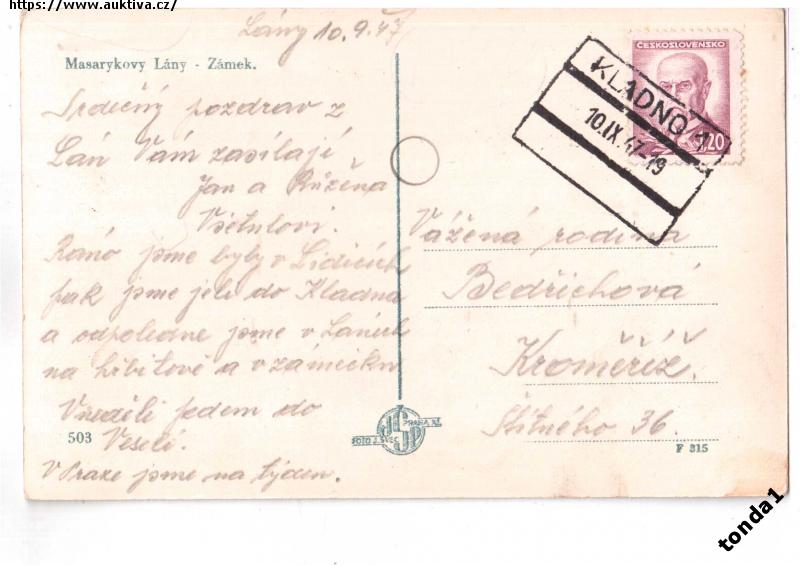 https://www.auktiva.cz/
Lány 10.9.47
Masarykovy Lány - Zámek.
Srdečný pozdrav z
Lán Vám zasílají
Jan a Růžena
Všetulovi.
Ráno jsme byly v Lidicích
pak jsme jeli do Kladna
a odpoledne jsme v Lánech
na hřbitově a v zámečku
V neděli jedem do
Veselí.
V Praze jsme na týden.
503
ČESKOSLOVENSKO
1,20
KLADNO 1
10.IX.47-19
Vážená rodina
Bedřichová
Kroměříž.
Štítného 36.
FOTO J. ŠVEC PRAHA XI.
F 315
tonda1